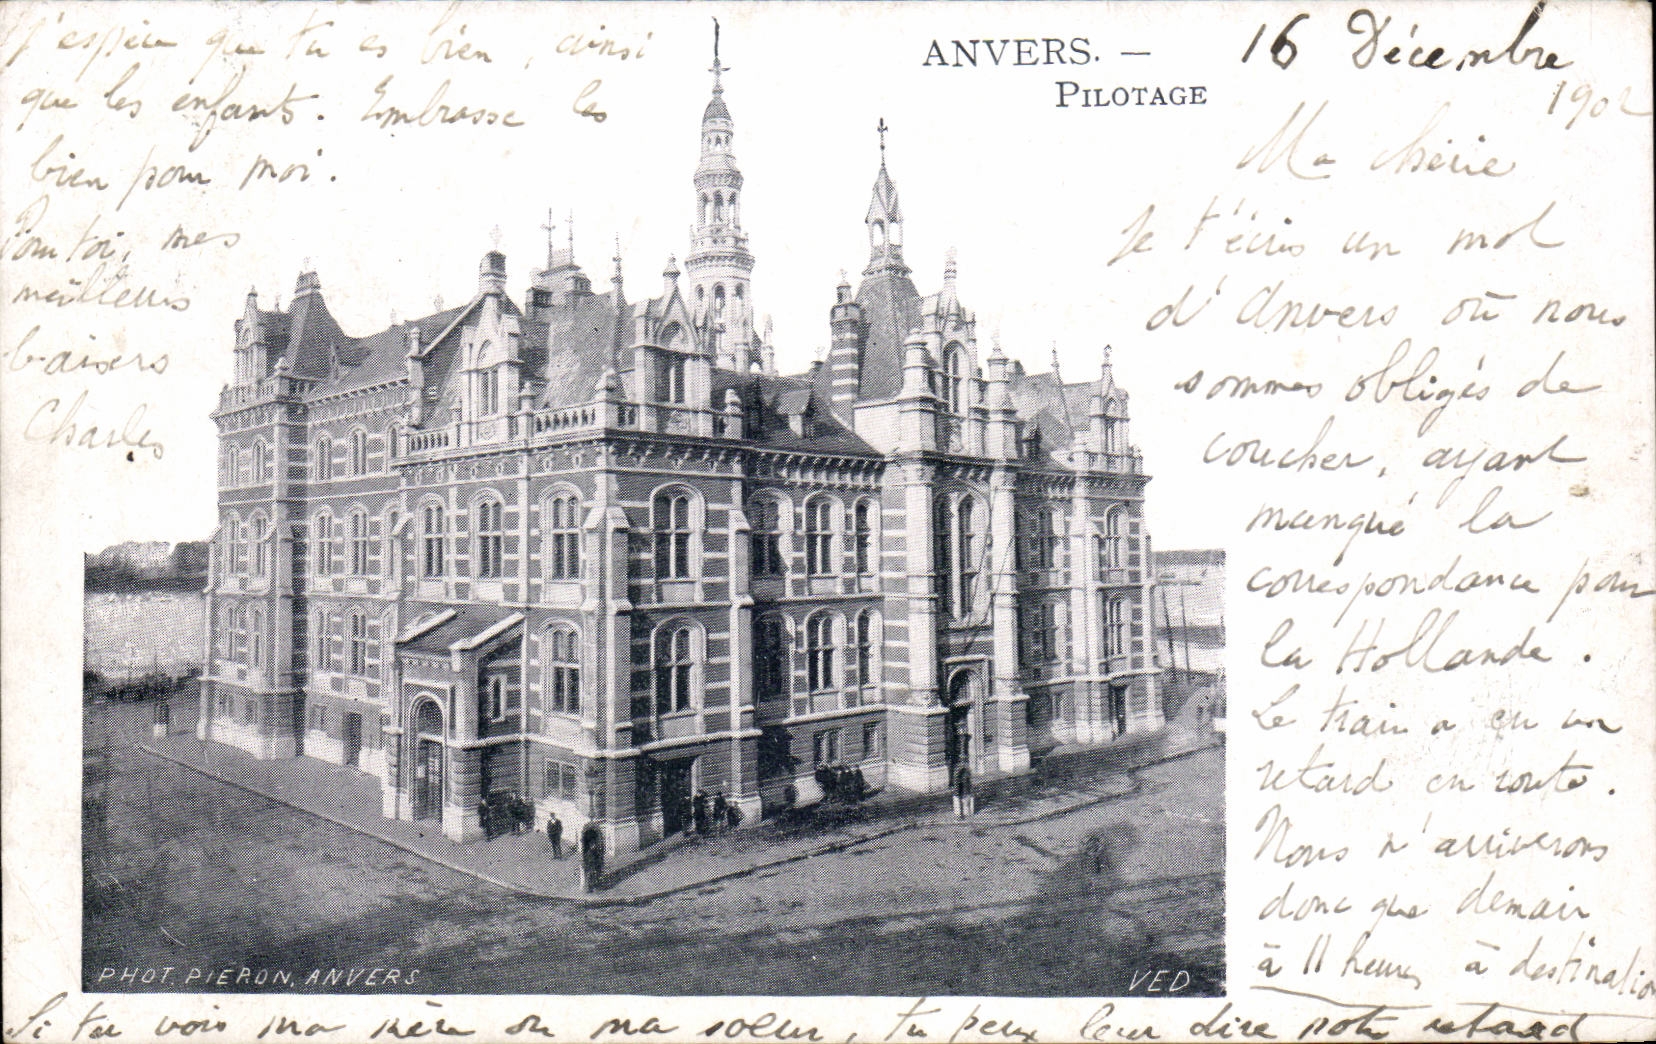 ANVERS. —
PILOTAGE
16 Décembre
1902
Ma chérie
Je t'écris un mot
d'Anvers où nous
sommes obligés de
coucher, ayant
manqué la
correspondance pour
la Hollande.
Le train a eu un
retard en route.
Nous n'arriverons
donc que demain
à 11 heures à destination
Si tu vois ma mère ou ma soeur, tu peux leur dire notre retard
J'espère que tu es bien, ainsi
que les enfants. Embrasse les
bien pour moi.
Pour toi, mes
meilleurs
baisers
Charles
PHOT. PIERON, ANVERS
VED